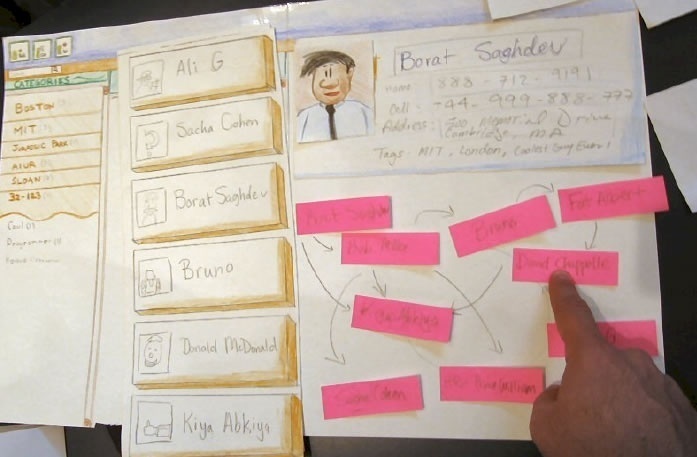 CATEGORIES
BOSTON
MIT
JURASSIC PARK
AIUR
SLOAN
32-123
Cool
Programmer
Ali G
Sacha Cohen
Borat Saghdev
Bruno
Donald McDonald
Kiya Abkiya
Borat Saghdev
home: 888-712-9191
Cell: +44-999-888-777
Address: Memorial Drive
Cambridge, MA
Tags: MIT, London, Coolest Guy Ever!
Bruno
Fat Albert
David Chappelle
Kiya Abkiya
Sacha Cohen